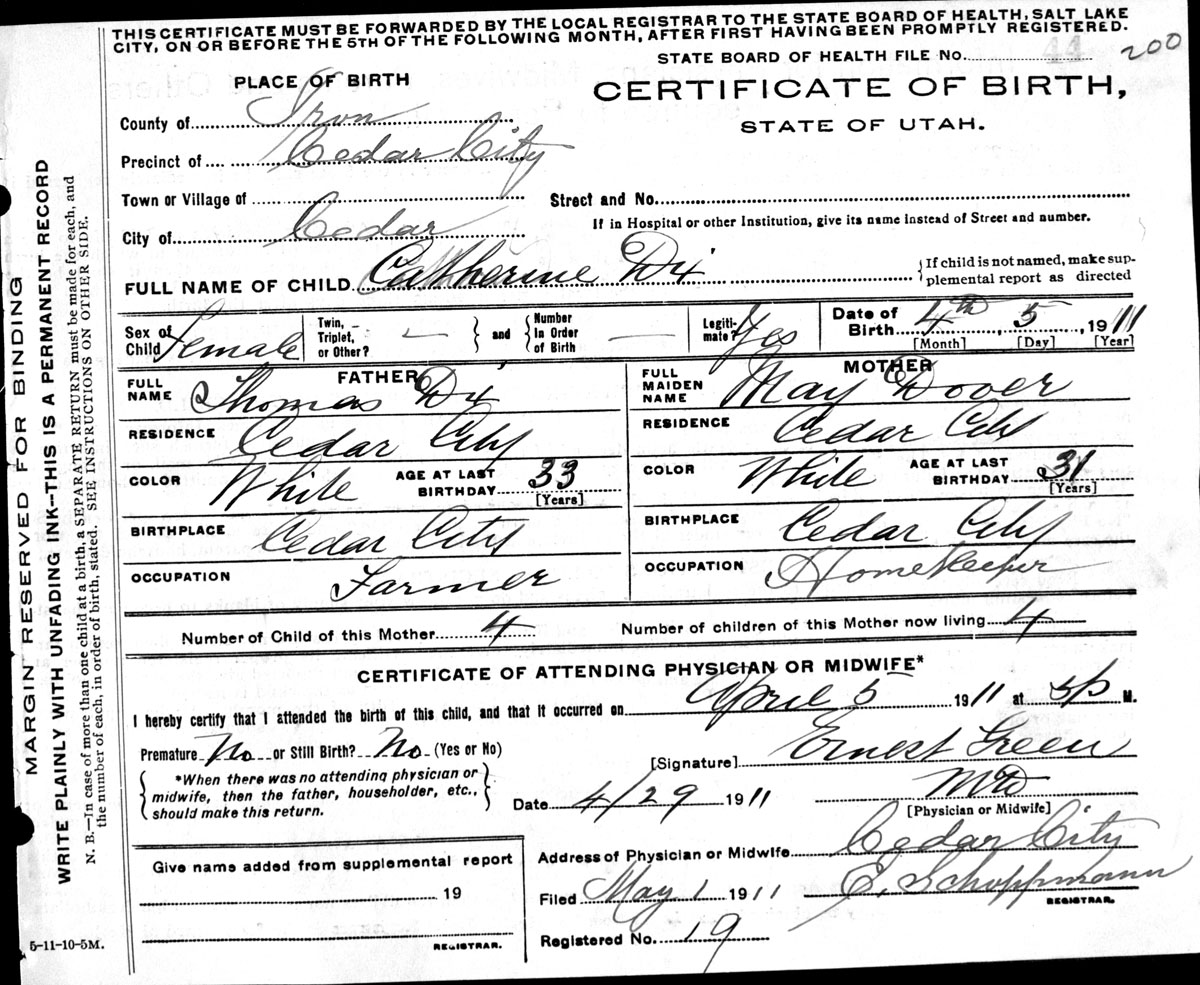 THIS CERTIFICATE MUST BE FORWARDED BY THE LOCAL REGISTRAR TO THE STATE BOARD OF HEALTH, SALT LAKE
CITY, ON OR BEFORE THE 5TH OF THE FOLLOWING MONTH, AFTER FIRST HAVING BEEN PROMPTLY REGISTERED.
STATE BOARD OF HEALTH FILE NO. 44 200
PLACE OF BIRTH
CERTIFICATE OF BIRTH,
STATE OF UTAH.
County of Iron
Precinct of Cedar City
Town or Village of
Street and No.
City of Cedar
If in Hospital or other Institution, give its name instead of Street and number.
FULL NAME OF CHILD Catherine Dix
{If child is not named, make sup-
plemental report as directed
Sex of Child Female
Twin, Triplet, or Other? —
and
Number In Order of Birth —
Legiti-mate? Yes
Date of Birth 4th, 5, 1911
[Month] [Day] [Year]
FATHER
FULL NAME Thomas Dix
RESIDENCE Cedar City
COLOR White
AGE AT LAST BIRTHDAY 33
[Years]
BIRTHPLACE Cedar City
OCCUPATION Farmer
MOTHER
FULL MAIDEN NAME May Dover
RESIDENCE Cedar City
COLOR White
AGE AT LAST BIRTHDAY 31
[Years]
BIRTHPLACE Cedar City
OCCUPATION HomeKeeper
Number of Child of this Mother 4
Number of children of this Mother now living 4
CERTIFICATE OF ATTENDING PHYSICIAN OR MIDWIFE*
I hereby certify that I attended the birth of this child, and that it occurred on April 5 1911 at 5P M.
Premature No or Still Birth? No (Yes or No)
{*When there was no attending physician or
midwife, then the father, householder, etc.,
should make this return.}
[Signature] Ernest Green
MD
[Physician or Midwife]
Date 4/29 1911
Give name added from supplemental report
19
REGISTRAR.
Address of Physician or Midwife Cedar City
Filed May 1 1911
E. Schoppmann
REGISTRAR.
Registered No. 19
5-11-10-5M.
MARGIN RESERVED FOR BINDING
WRITE PLAINLY WITH UNFADING INK--THIS IS A PERMANENT RECORD
N. B.—In case of more than one child at a birth, a SEPARATE RETURN must be made for each, and
the number of each, in order of birth, stated. SEE INSTRUCTIONS ON OTHER SIDE.